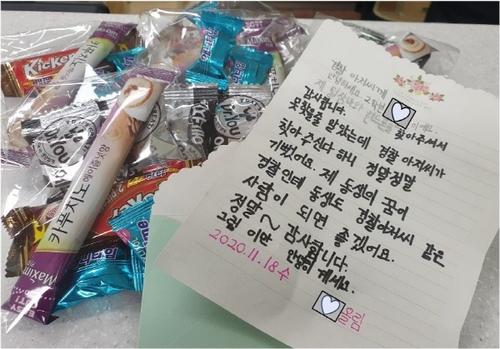 경찰 아저씨께
안녕하세요 2학년
제 찾아주셔서
감사합니다.
못찾을줄 알았는데 경찰 아저씨가
찾아 주신다 하니 정말정말
기뻤어요. 제 동생이 꿈이
경찰인데 동생도 경찰아저씨 같은
사람이 되면 좋겠어요.
정말~ 감사합니다.
그럼 이만 안녕히 계세요.
2020.11.18수
올림
Kicker
Maxim
카푸치노